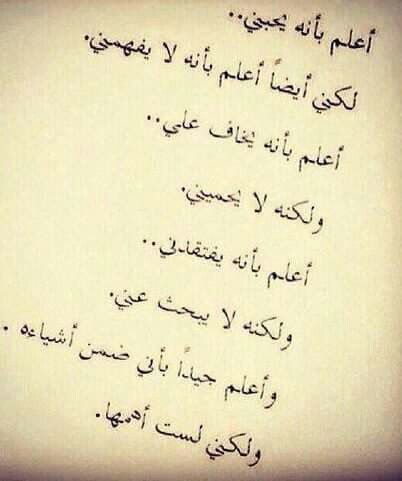 أعلم بأنه يحبني..
لكني أيضاً أعلم بأنه لا يفهمني.
أعلم بأنه يخاف علي..
ولكنه لا يحميني.
أعلم بأنه يفتقدني..
ولكنه لا يبحث عني.
وأعلم جيداً بأني ضمن أشياءه .
ولكني لست أهمها.